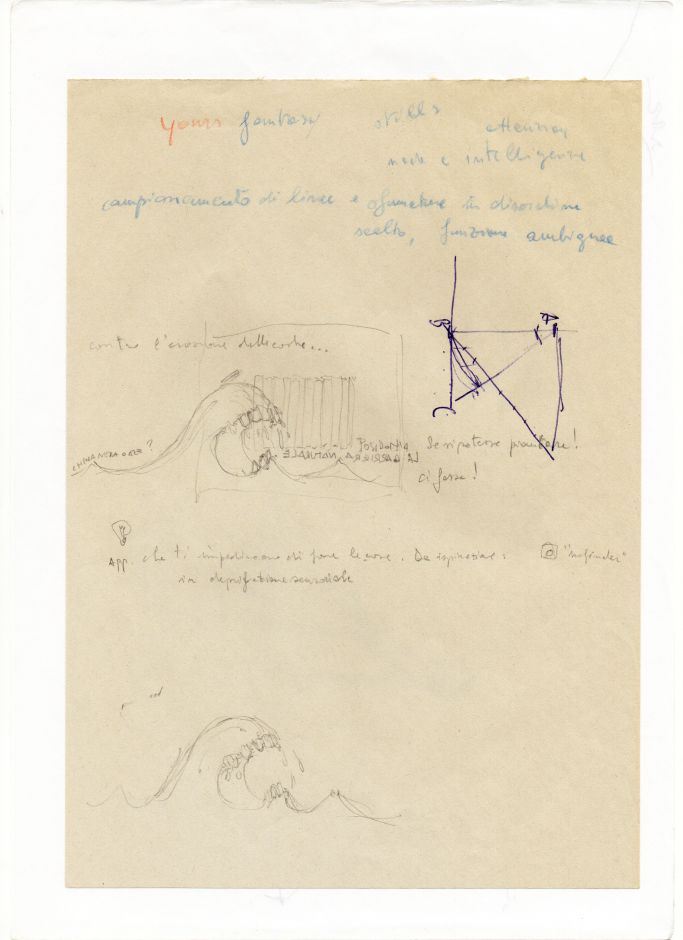 yours fantasy skills attention
mode e intelligenze
campionamento di linee e sfumature in disordine
scelto, funzione ambigua
contro l'erosione delle coste...
POSIDONIA
LA BARRIERA NATURALE
Se si potesse
ci fosse!
App. che ti impediscono di fare le cose. Da ispirazione:
in deprivazione sensoriale